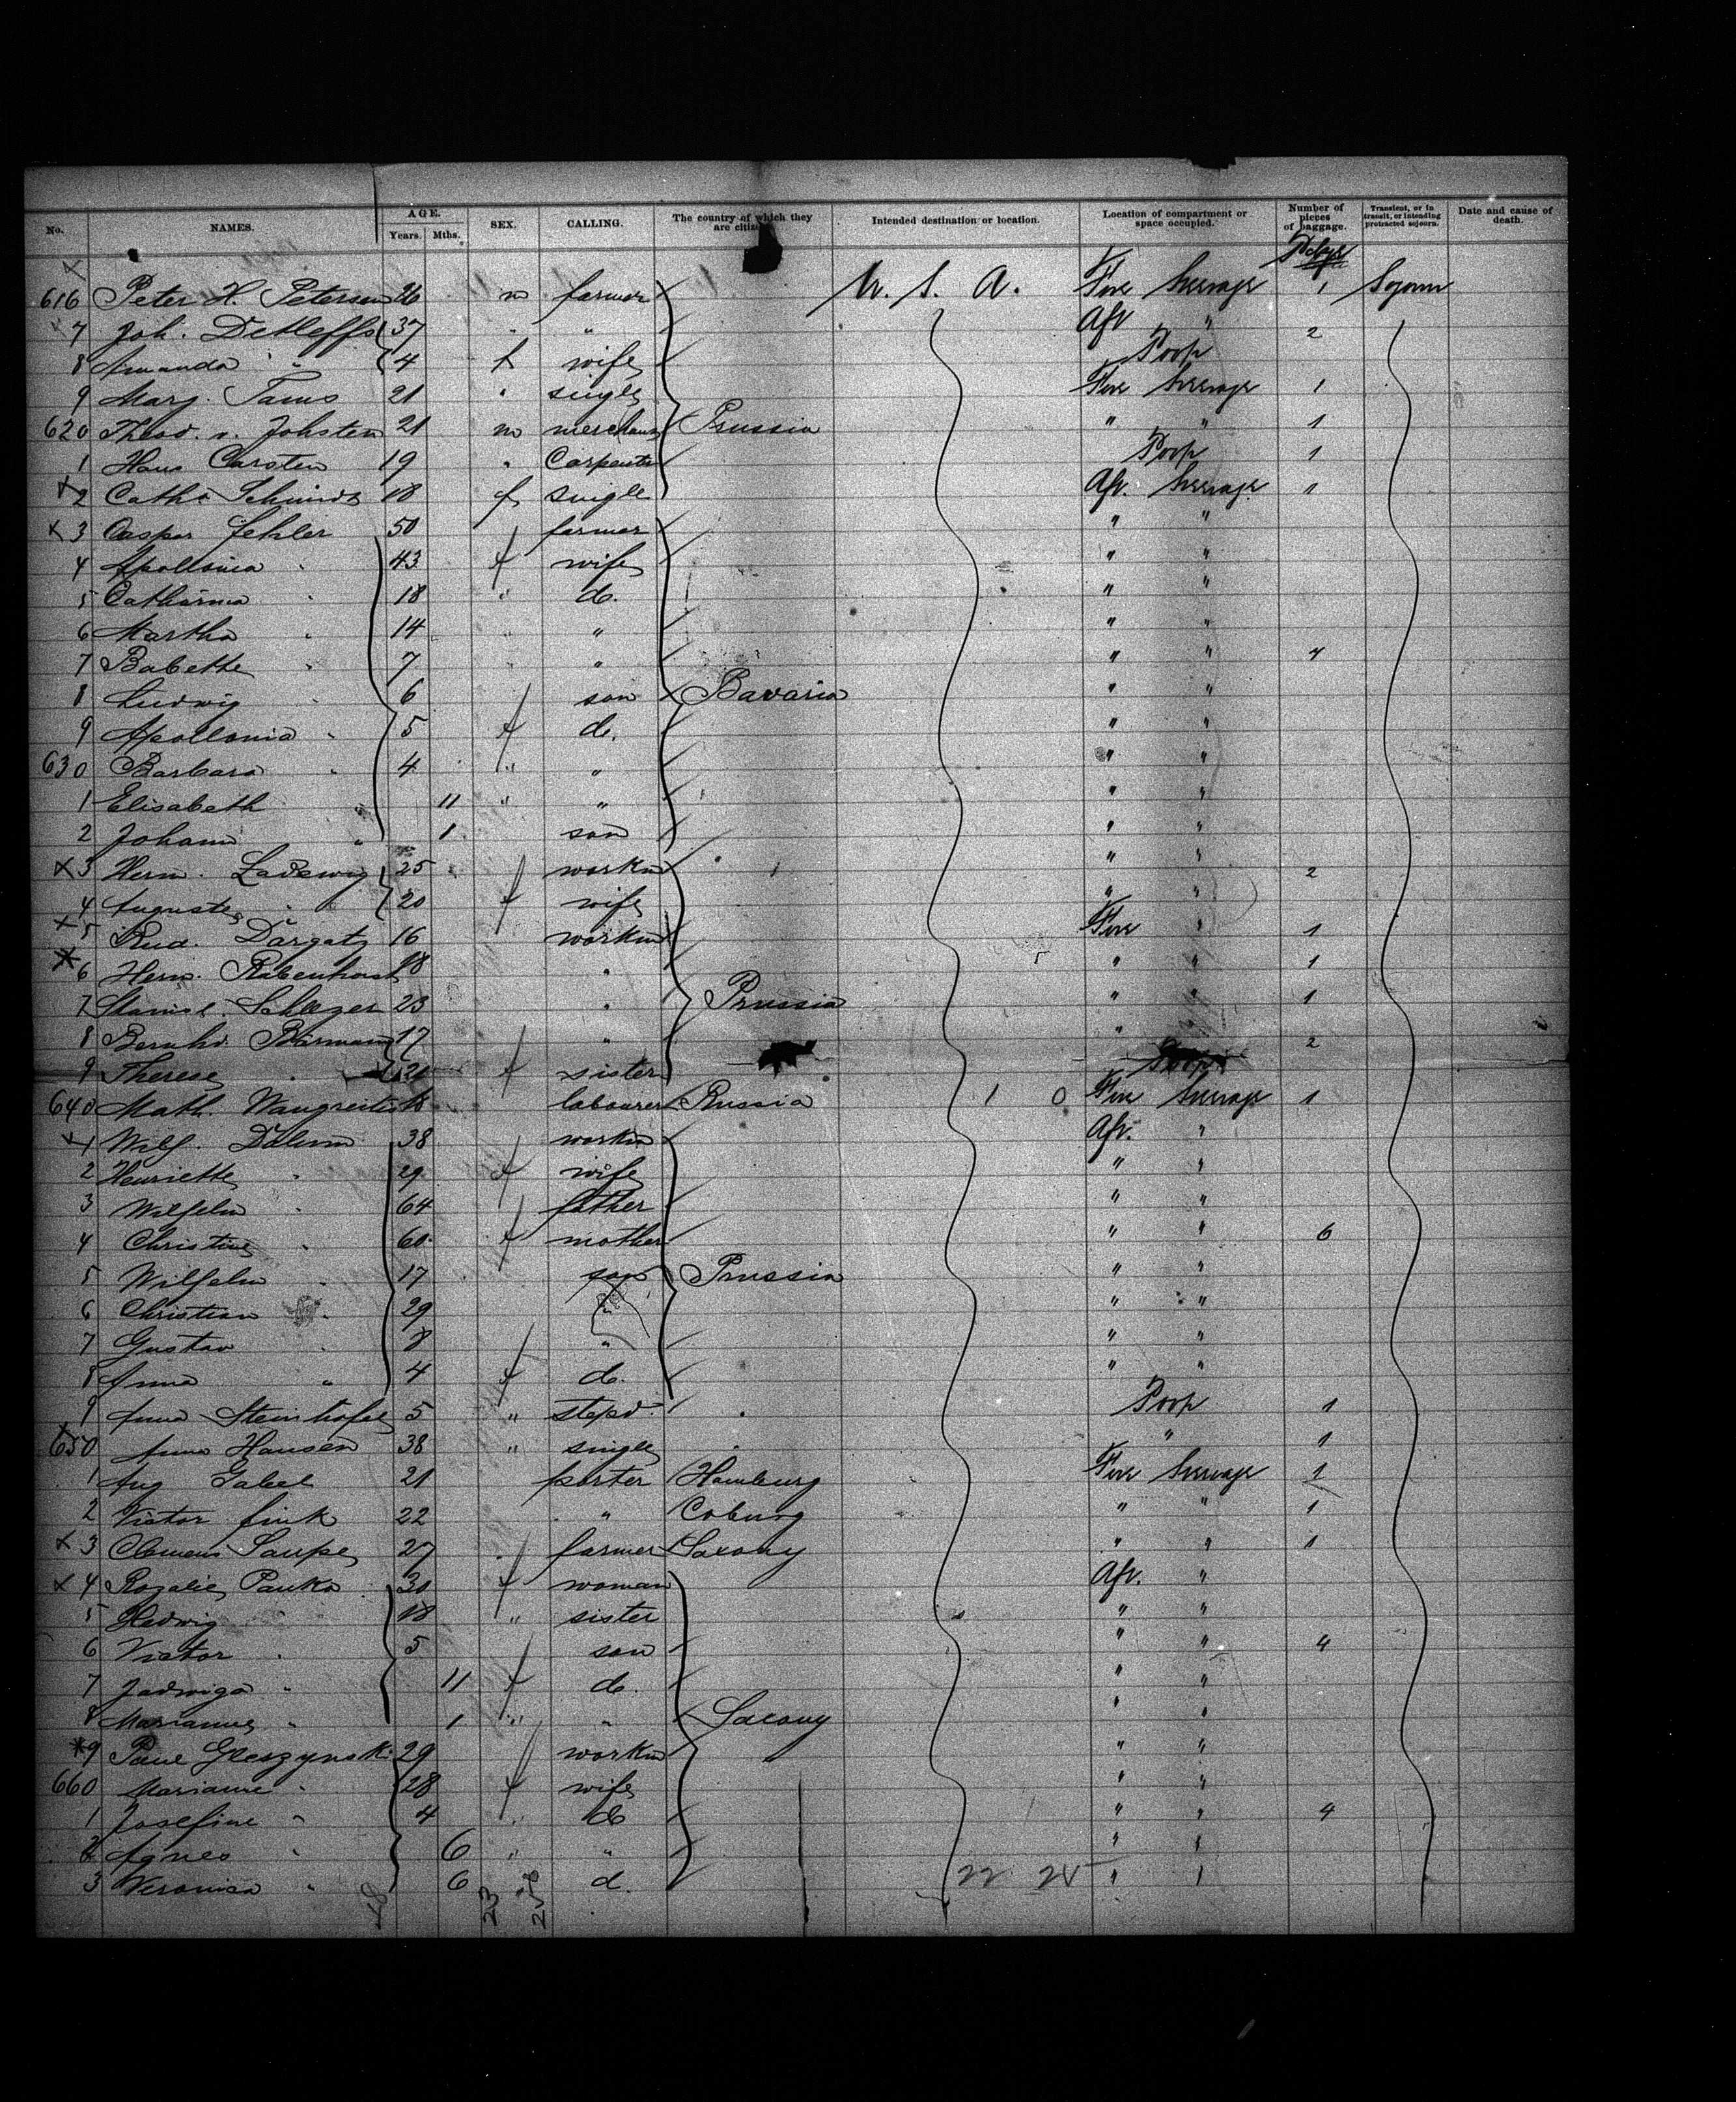 No. NAMES. AGE. Years. Mths. SEX. CALLING. The country of which they are citizens. Intended destination or location. Location of compartment or space occupied. Number of pieces of baggage. Transient, or in transit, or intending protracted sojourn. Date and cause of death.
616 Peter H. Petersen 26 m farmer U. S. A. Fore Steerage 1 Sojourn
7 Joh. Detleffs 37 " " Aft " 2
8 Amanda " 4 f wife Poop
9 Marg. Tams 21 " single Fore Steerage 1
620 Theod. v. Johsten 21 m merchant Prussia " " 1
1 Hans Carsten 19 " Carpenter Poop 1
2 Cath. Schmidt 18 f single Aft. Steerage 1
3 Caspar Fehler 50 farmer " "
4 Apollonia " 43 f wife " "
5 Catharina " 18 " d. " "
6 Martha " 14 " " " "
7 Babette " 7 " " " " 4
8 Ludwig " 6 son Bavaria " "
9 Apollonia " 5 f d. " "
630 Barbara " 4 " " " "
1 Elisabeth 11 " " " "
2 Johann " 1 son " "
3 Herm. Ladewig 25 workm " " 2
4 Auguste " 20 f wife " "
5 Rud. Dargatz 16 workm Fore " 1
6 Herm. Rabenhorst 18 " " " 1
7 23 " Prussia " " 1
8 Bernhd. 17 " " 2
9 Therese " 20 f sister Poop
640 Math. 18 labourer Russia 1 0 Fore Steerage 1
1 Wilh. 38 workm Aft. "
2 Henriette " 29 f wife " "
3 Wilhelm " 64 father " "
4 Christine " 60 f mother " " 6
5 Wilhelm " 17 son Prussia " "
6 Christian " 29 " " "
7 Gustav " 8 " " "
8 Anna " 4 f d. " "
9 Anna 5 " stepd. Poop 1
650 Anna Hansen 38 " single " 1
1 Aug Gabel 21 porter Hamburg Fore Steerage 1
2 Victor Fink 22 " Coburg " " 1
3 Clemens Saupe 27 farmer Saxony " " 1
4 Rozalie Panka 30 f woman Aft. "
5 Hedwig " 18 " sister " "
6 Victor " 5 son " " 4
7 Jadwiga " 11 f d. " "
8 Marianne " 1 " " Saxony "
9 Paul 29 workm " "
660 Marianne " 28 f wife " "
1 Josefine " 4 " d " " 4
2 Agnes " 6 " " " "
3 Veronica " 6 d. 22 25 " "
48 23 25